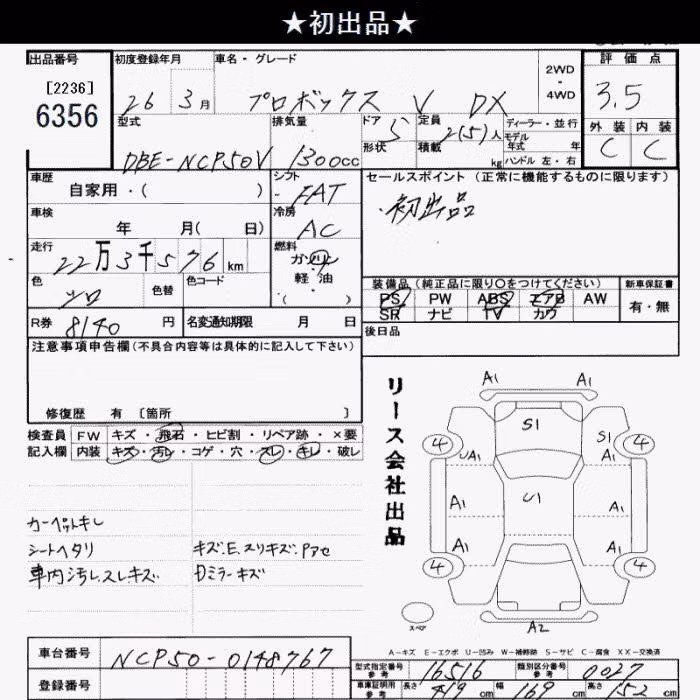 ★初出品★
出品番号 初度登録年月 車名・グレード 2WD・4WD 評価点
[2236]
6356
26 3月 プロボックス V DX 3.5
型式 排気量 ドア 形状 5 定員 積載 2(5)人 kg ディーラー・並行 モデル年式 年 ハンドル 左・右 外装 内装
DBE-NCP50V 1300cc C C
車歴 自家用・( ) シフト FAT セールスポイント(正常に機能するものに限ります)
・初出品
車検 年 月( 日) 冷房 AC
走行 22万3千576km 燃料 ガソリン 軽油 ・( )
色 シロ 色替 色コード
装備品(純正品に限り〇をつけてください) 新車保証書
PS PW ABS エアB AW 有・無
SR ナビ TV カワ
R券 8140円 名変通知期限 月 日 後日品
注意事項申告欄(不具合内容等は具体的に記入して下さい)
修復歴 有 [箇所 ]
検査員 FW キズ・飛石・ヒビ割・リペア跡・×要
記入欄 内装 キズ・汚レ・コゲ・穴・スレ・キレ・破レ
カーペットキレ
シートヘタリ キズ.E.スリキズ.Pアセ
車内汚レ.スレキズ Dミラーキズ
リース会社出品
A1 A1
S1
4 S1 4
UA1 A1
A1 U1 A1
A1 A1
4 4
スペア A2
A-キズ E-エクボ U-凹み W-補修跡 S-サビ C-腐食 XX-交換済
車台番号 NCP50-0148767
型式指定番号 参考 16516 類別区分番号 参考 0027
登録番号
車庫証明用 参考 長さ 419cm 幅 169cm 高さ 152cm